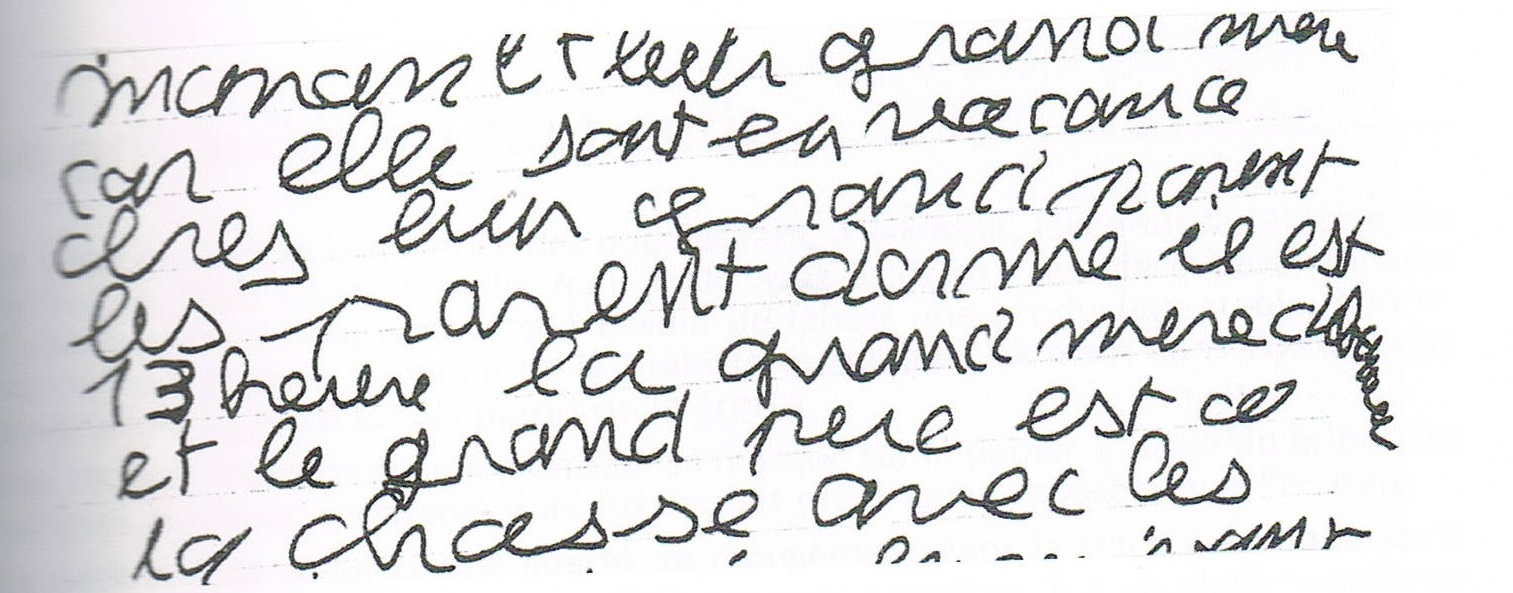 maman et leur grand mere
car elle sont en vacance
chés leur grand parent
les parent dorme il est
13 heure la grand mere
et le grand pere est a
la chasse avec les